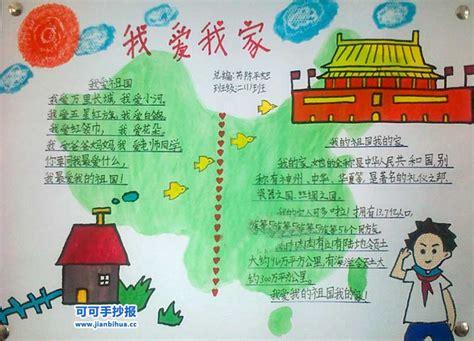 我爱我家
我爱祖国
我爱万里长城,我爱小河。
我爱五星红旗,我爱白鸽。
我爱红领巾,我爱花朵。
我爱爸爸妈妈我爱老师同学,
你要问我最爱什么,
我最爱我的祖国!
我的祖国我的家
我的家,她的全称是中华人民共和国,别
称有神州、中华、华夏等,是著名的礼仪之邦,
瓷器之国、丝绸之国。
我的家人可多啦!拥有13.7亿人口
56个民族。
大约960万平方公里,有海洋令土大
约300万平方公里。
我爱我的祖国我的家!
可可手抄报
www.jianbihua.cc